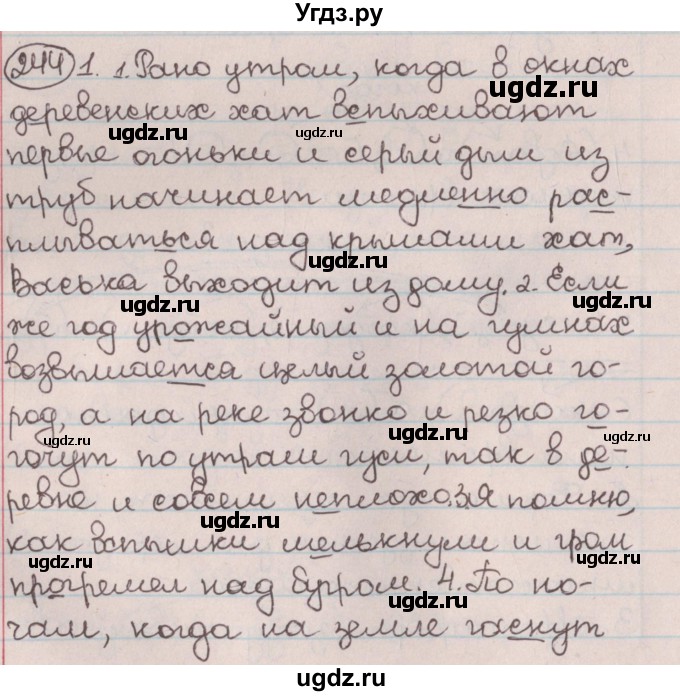 Угдз.ру
244 1. 1. Рано утром, когда в окнах
деревенских хат вспыхивают
первые огоньки и серый дым из
труб начинает медленно рас-
плываться над крышами хат,
Васька выходит из дому. 2. Если
же год урожайный и на гумнах
возвышается целый золотой го-
род, а на реке звонко и резко го-
гочут по утрам гуси, так в де-
ревне и совсем неплохо. 3. Я помню,
как вспышки мелькнули и гром
прогремел над бугром. 4. По но-
чам, когда на земле гаснут
Угдз.ру